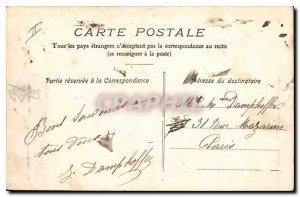 CARTE POSTALE
Tous les pays étrangers n'acceptent pas la correspondance au recto
(se renseigner à la poste)
Partie réservée à la Correspondance
Adresse du destinataire
Bons souvenirs
tous deux
J. Damphoffer
Damphoffer
31 Rue Mazarine
Paris